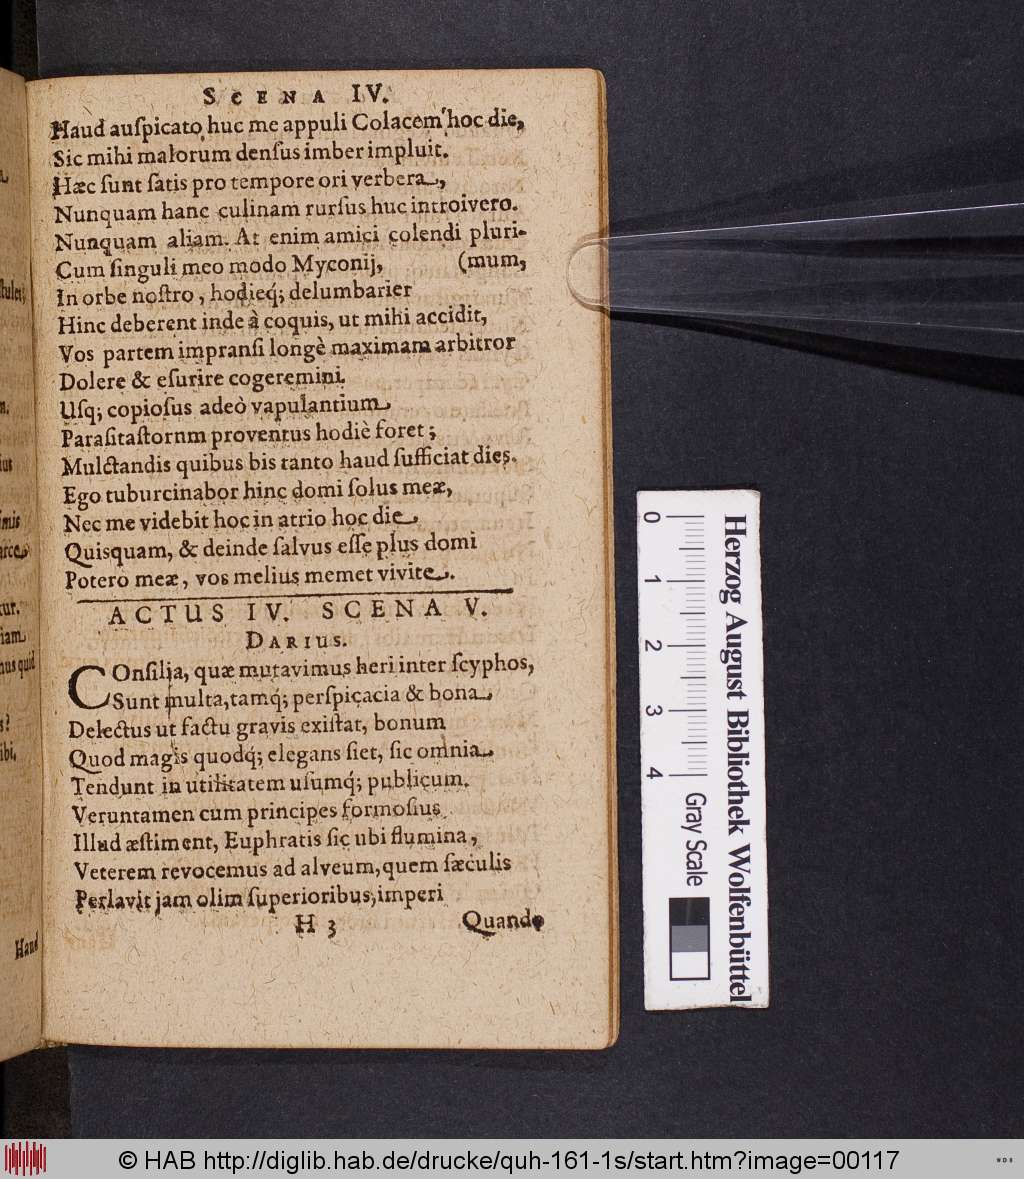 SCENA IV.
Haud auſpicato huc me appuli Colacem hoc die,
Sic mihi malorum denſus imber impluit.
Hæc ſunt ſatis pro tempore ori verbera,
Nunquam hanc culinam rurſus huc introivero.
Nunquam aliam. At enim amici colendi pluri-
Cum ſinguli meo modo Myconij, (mum,
In orbe noſtro, hodieq́; delumbarier
Hinc deberent inde à coquis, ut mihi accidit,
Vos partem impranſi longè maximam arbitror
Dolere & eſurire cogeremini.
Uſq; copioſus adeò vapulantium
Paraſitaſtornm proventus hodiè foret;
Mulctandis quibus bis tanto haud ſufficiat dies.
Ego tuburcinabor hinc domi ſolus meæ,
Nec me videbit hoc in atrio hoc die
Quisquam, & deinde ſalvus eſſe plus domi
Potero meæ, vos melius memet vivite.
ACTUS IV. SCENA V.
DARIUS.
COnſilia, quæ mutavimus heri inter ſcyphos,
Sunt multa, tamq́; perſpicacia & bona
Delectus ut factu gravis exiſtat, bonum
Quod magis quodq́; elegans ſiet, ſic omnia
Tendunt in utilitatem uſumq́; publicum.
Veruntamen cum principes formoſius
Illud æſtiment, Euphratis ſic ubi flumina,
Veterem revocemus ad alveum, quem ſæculis
Perlavit jam olim ſuperioribus, imperi
H 3 Quando
Haud
Herzog August Bibliothek Wolfenbüttel
0 1 2 3 4 Gray Scale
© HAB http://diglib.hab.de/drucke/quh-161-1s/start.htm?image=00117